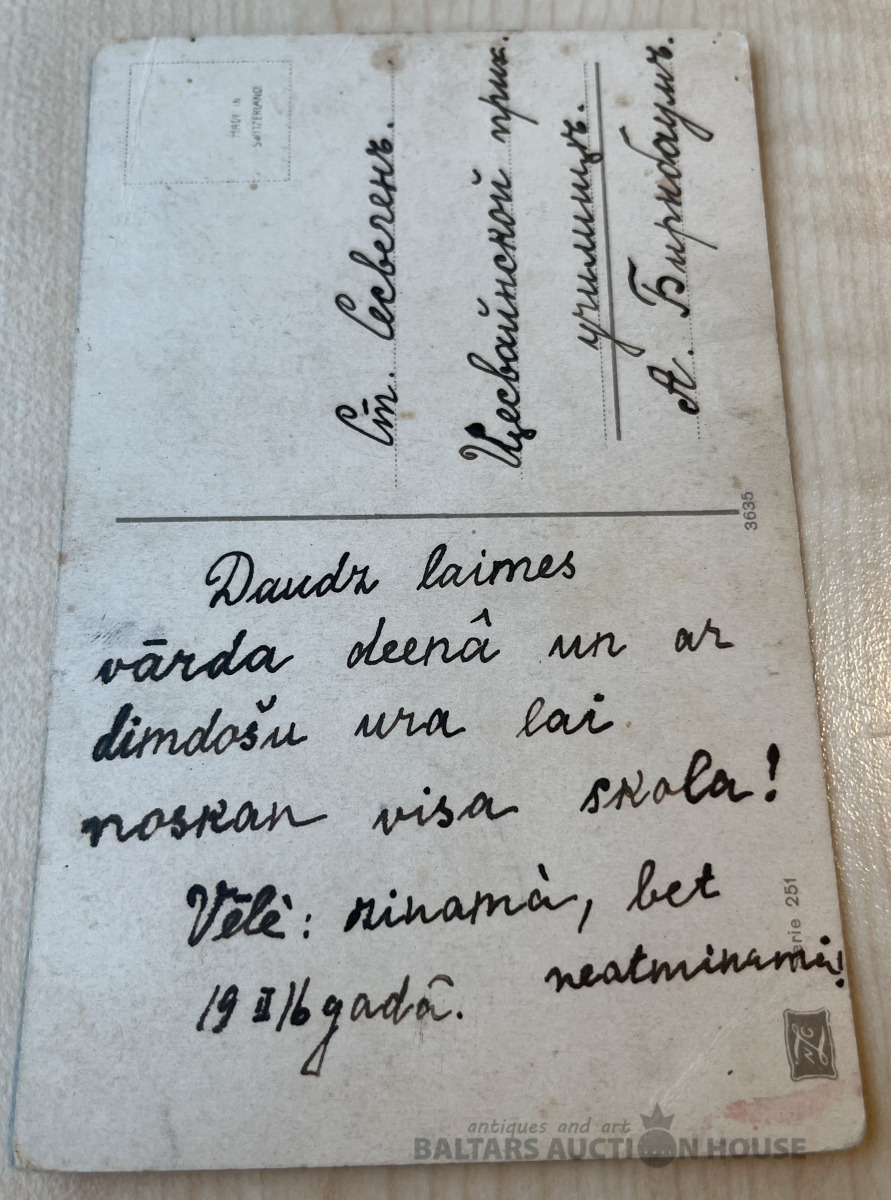 MADE IN
SWITZERLAND
Ст. Сесвегенъ.
Цесвайнской прих.
училищъ.
А. Биркбаумъ.
3635
Daudz laimes
vārda deenâ un ar
dimdošu ura lai
noskan visa skola!
Vēlè: zinamà, bet
neatminamà!
19 II 16 gadâ.
erie 251
antiques and art
BALTARS AUCTION HOUSE